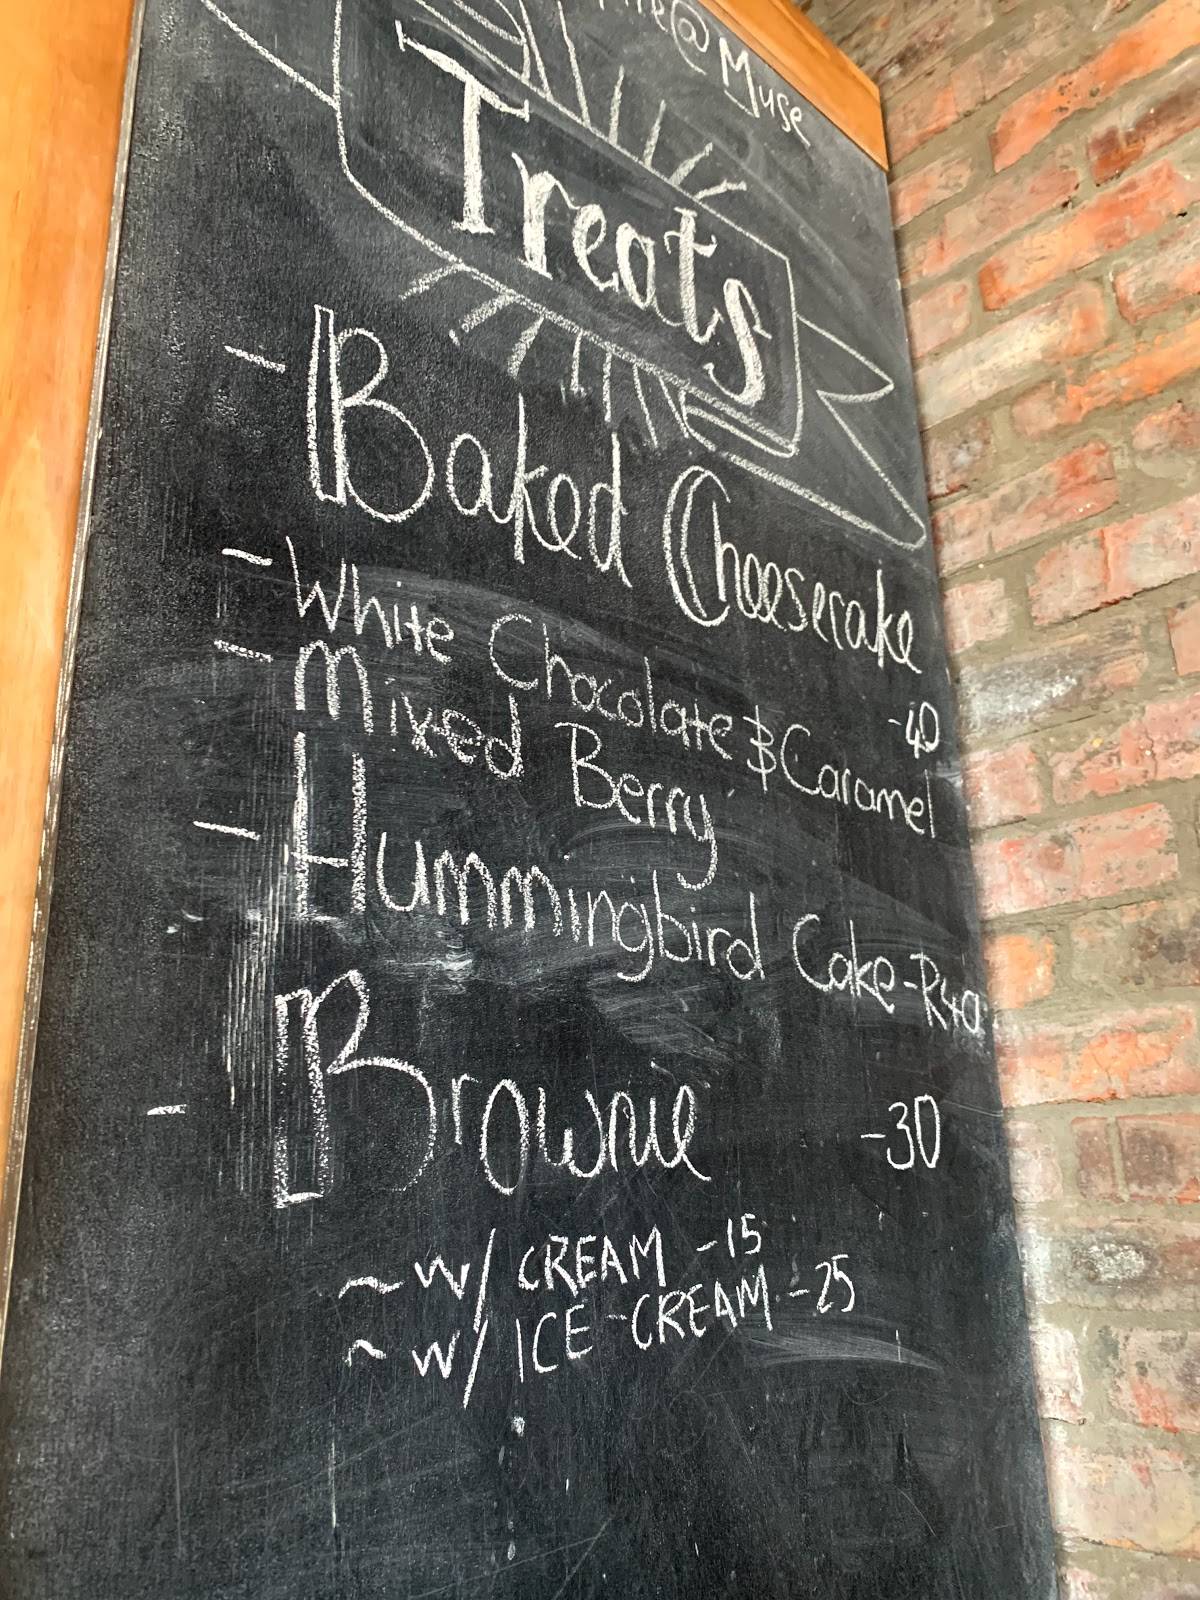 @Muse
Treats
- Baked Cheesecake
-40
- White Chocolate & Caramel
- Mixed Berry
- Hummingbird Cake - R40
- Brownie -30
~ w/ CREAM -15
~ w/ ICE-CREAM -25